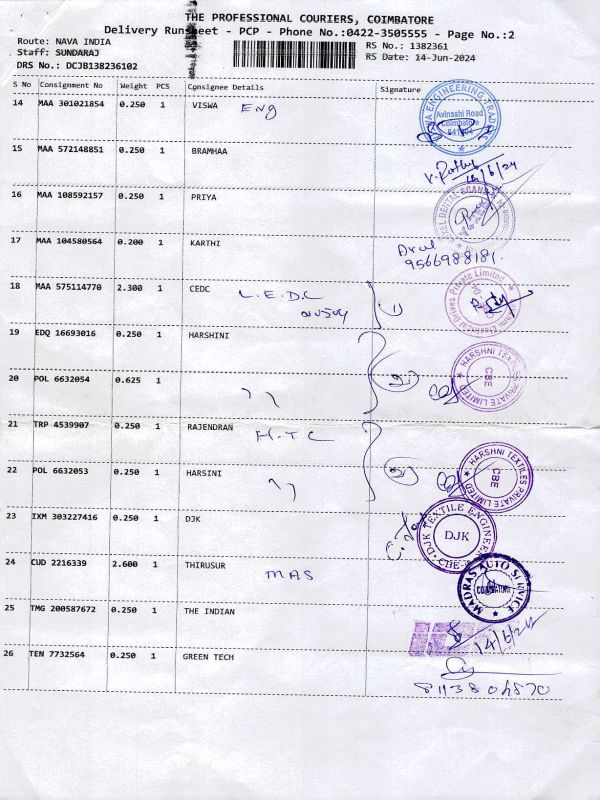 THE PROFESSIONAL COURIERS, COIMBATORE
Delivery Runsheet - PCP - Phone No.:0422-3505555 - Page No.:2
Route: NAVA INDIA
Staff: SUNDARAJ
DRS No.: DCJB138236102
RS No.: 1382361
RS Date: 14-Jun-2024
S No Consignment No Weight PCS Consignee Details Signature
14 MAA 301021854 0.250 1 VISWA Eng
Avinashi Road
Coimbatore
15 MAA 572148851 0.250 1 BRAMHAA
14/6/24
16 MAA 108592157 0.250 1 PRIYA
17 MAA 104580564 0.200 1 KARTHI
9566988181
18 MAA 575114770 2.300 1 CEDC L.E.D.C
Private Limited
19 EDQ 16693016 0.250 1 HARSHINI
HARSHNI TEXTILES PRIVATE LIMITED
CBE
20 POL 6632054 0.625 1
21 TRP 4539907 0.250 1 RAJENDRAN H.T.C
22 POL 6632053 0.250 1 HARSINI
HARSHNI TEXTILES PRIVATE LIMITED
CBE
23 IXM 303227416 0.250 1 DJK
DJK TEXTILE ENGINEE
DJK
CBE
24 CUD 2216339 2.600 1 THIRUSUR MAS
MADRAS AUTO SERVICE
COIMBATORE
25 TMG 200587672 0.250 1 THE INDIAN
14/6/24
26 TEN 7732564 0.250 1 GREEN TECH